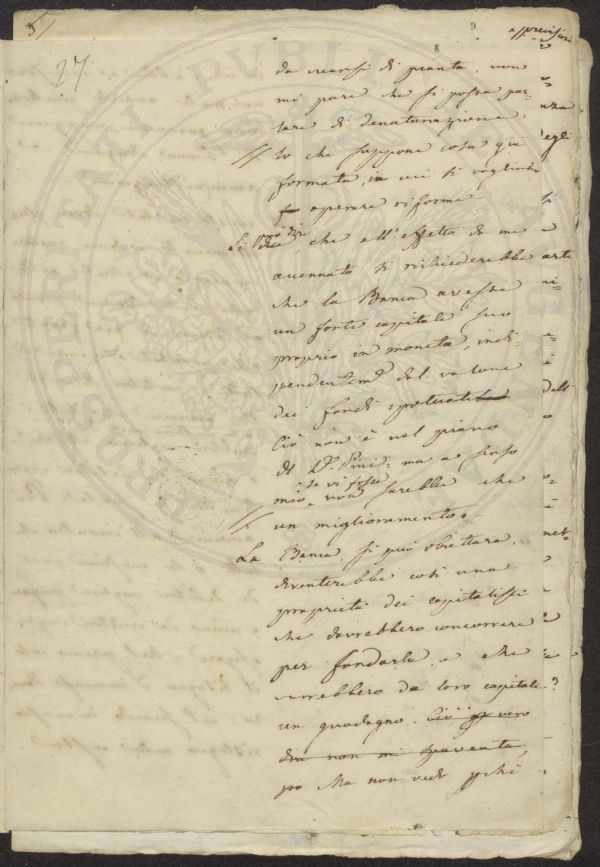 27
8
9
da crearsi di pianta, non
mi pare che si possa par-
lare di denaturazione.
// Io che suppone cosa già
formata, in cui si vogliono
operare riforme
Si può dire che all'effetto da me
accennato si richiederebbe
che la Banca avesse
un forte capitale suo
proprio in moneta, indi-
pendentem.e dal valore
dei fondi
Ciò non è nel piano
ma a senso
mio, se vi fosse, non sarebbe che
// un miglioramento.
La Banca, si può obiettare,
diventerebbe così una
proprietà dei capitalisti
che dovrebbero concorrere
per fondarla, e che
vorrebbero da loro capitali
un guadagno. Ciò vero
non mi spaventa
Ma non vedo pchè